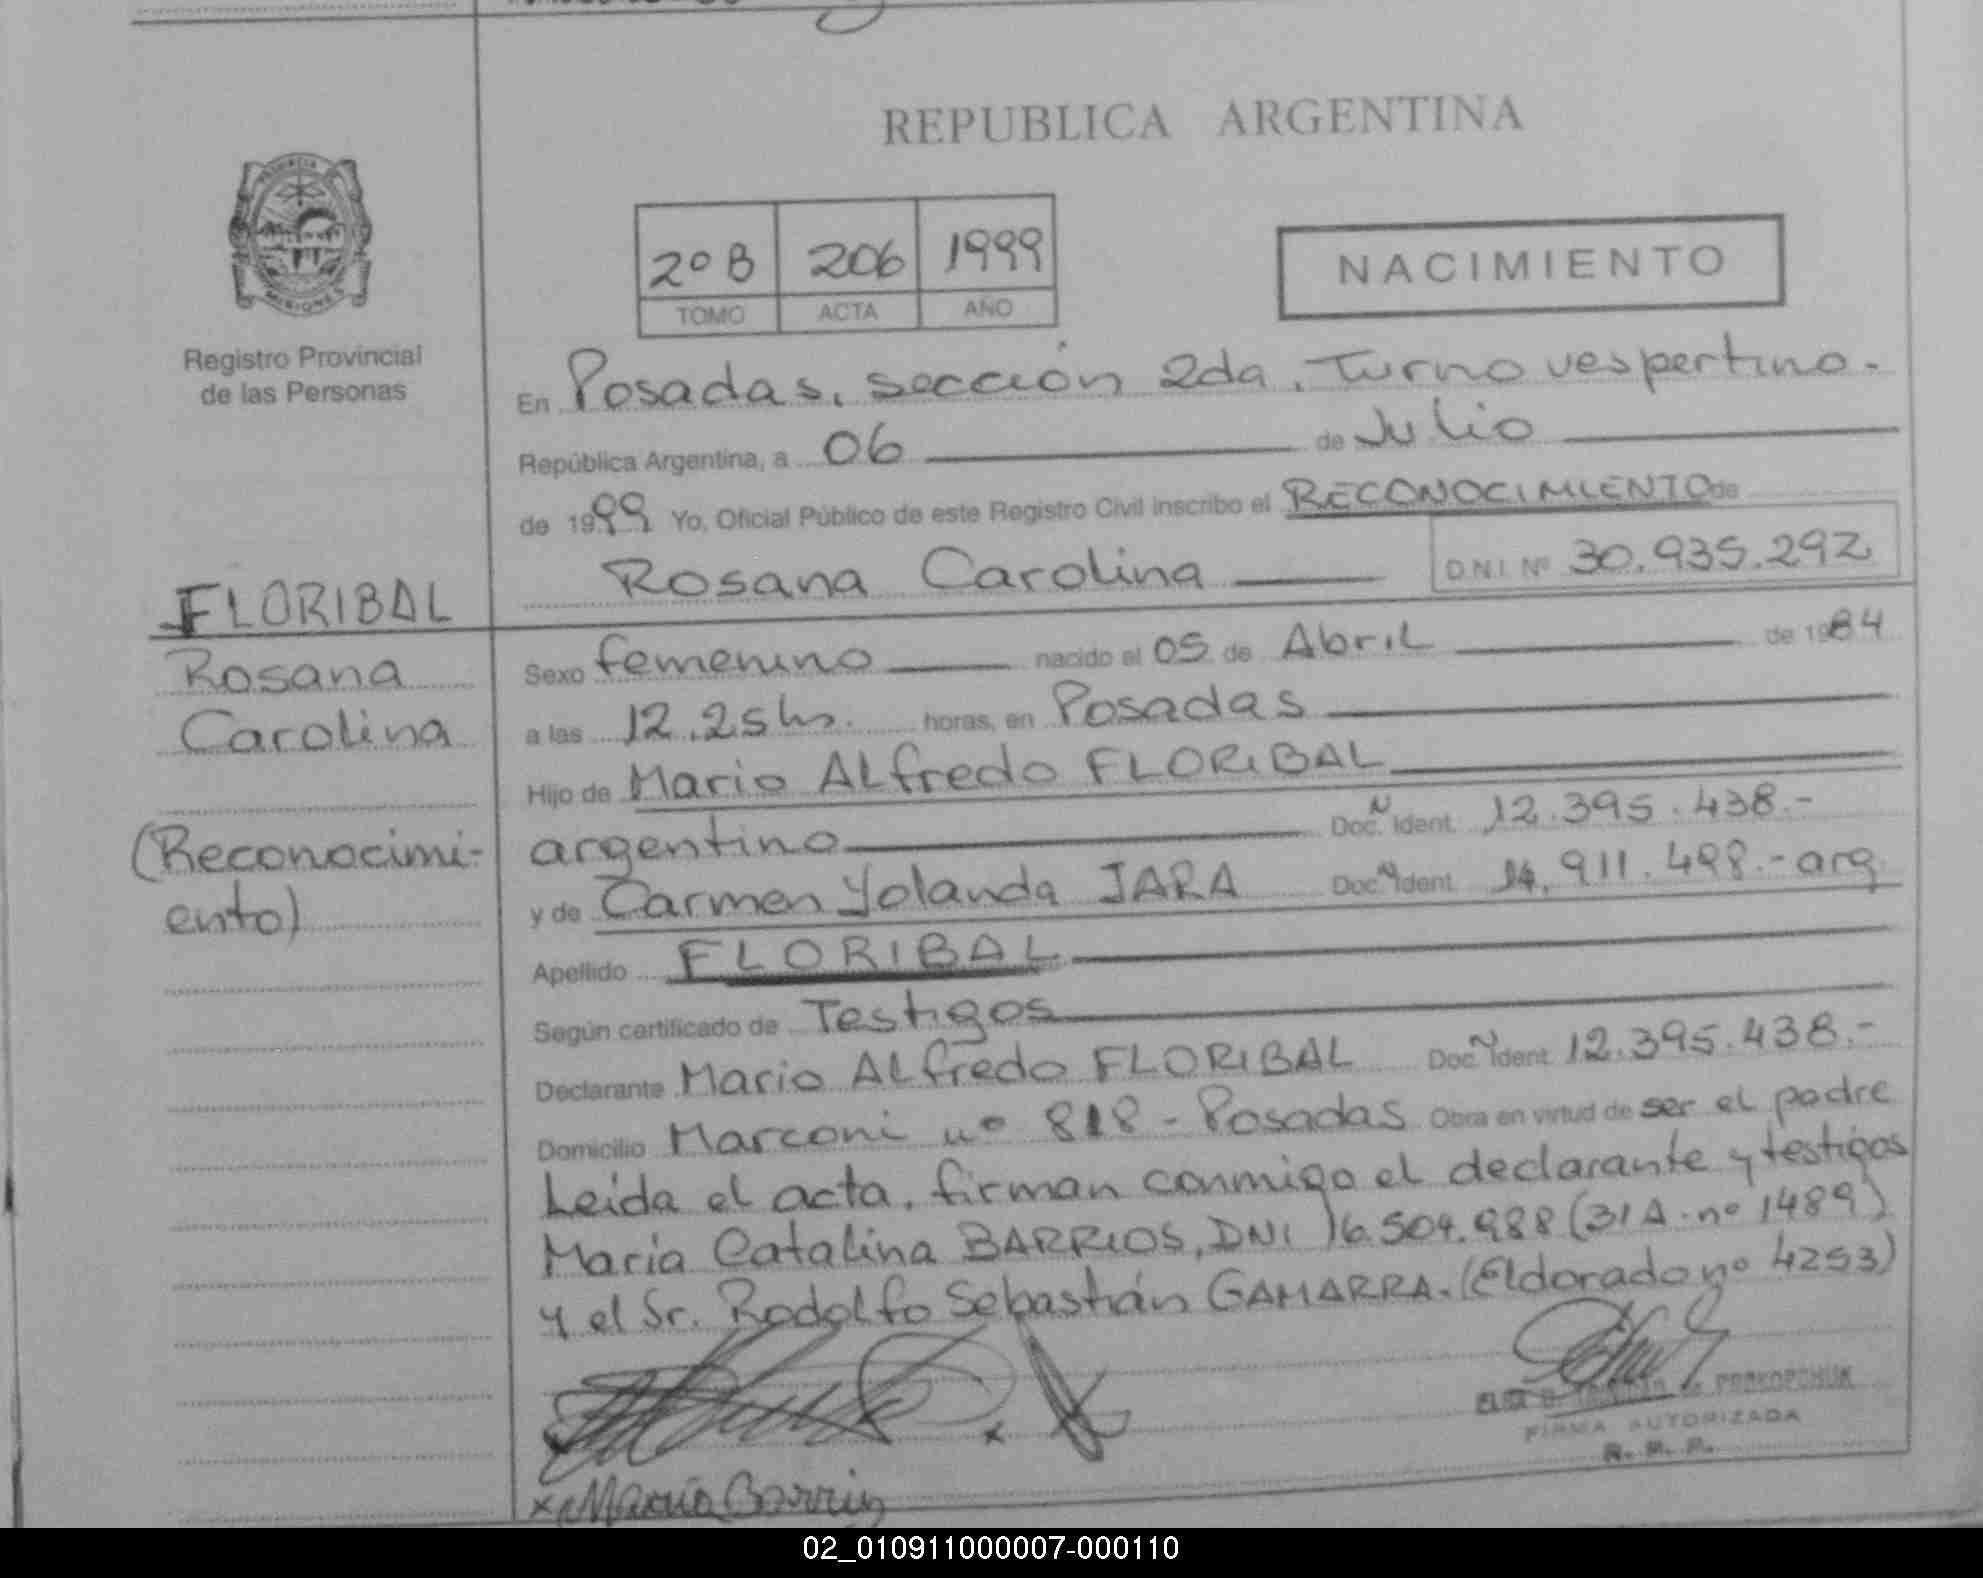 REPUBLICA ARGENTINA
PROVINCIA
MISIONES
Registro Provincial
de las Personas
2º B 206 1999
TOMO ACTA AÑO
NACIMIENTO
En Posadas, sección 2da, Turno vespertino.-
República Argentina, a 06 de Julio
de 1999 Yo, Oficial Público de este Registro Civil inscribo el RECONOCIMIENTO de
Rosana Carolina D.N.I. Nº 30.935.292
FLORIBAL
Rosana
Carolina
(Reconocimi-
ento)
Sexo femenino nacido el 05 de Abril de 1984
a las 12.25 hs. horas, en Posadas
Hijo de Mario Alfredo FLORIBAL
argentino Doc. N Ident. 12.395.438.-
y de Carmen Yolanda JARA Doc. N Ident. 14.911.498.- arg
Apellido FLORIBAL
Según certificado de Testigos
Declarante Mario Alfredo FLORIBAL Doc. N Ident. 12.395.438.-
Domicilio Marconi nº 818 - Posadas Obra en virtud de ser el padre
Leída el acta, firman conmigo el declarante y testigos
María Catalina BARRIOS, DNI 16.504.988 (31 A. nº 1489)
y el Sr. Rodolfo Sebastián GAMARRA. (Eldorado nº 4253)
x María Barrios
PROKOPCHUK
FIRMA AUTORIZADA
R. P. P.
02_010911000007-000110